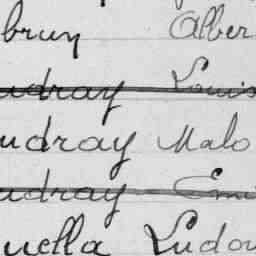 brun Alber
udray Louis
udray Malo
udray Emi
uella Ludov